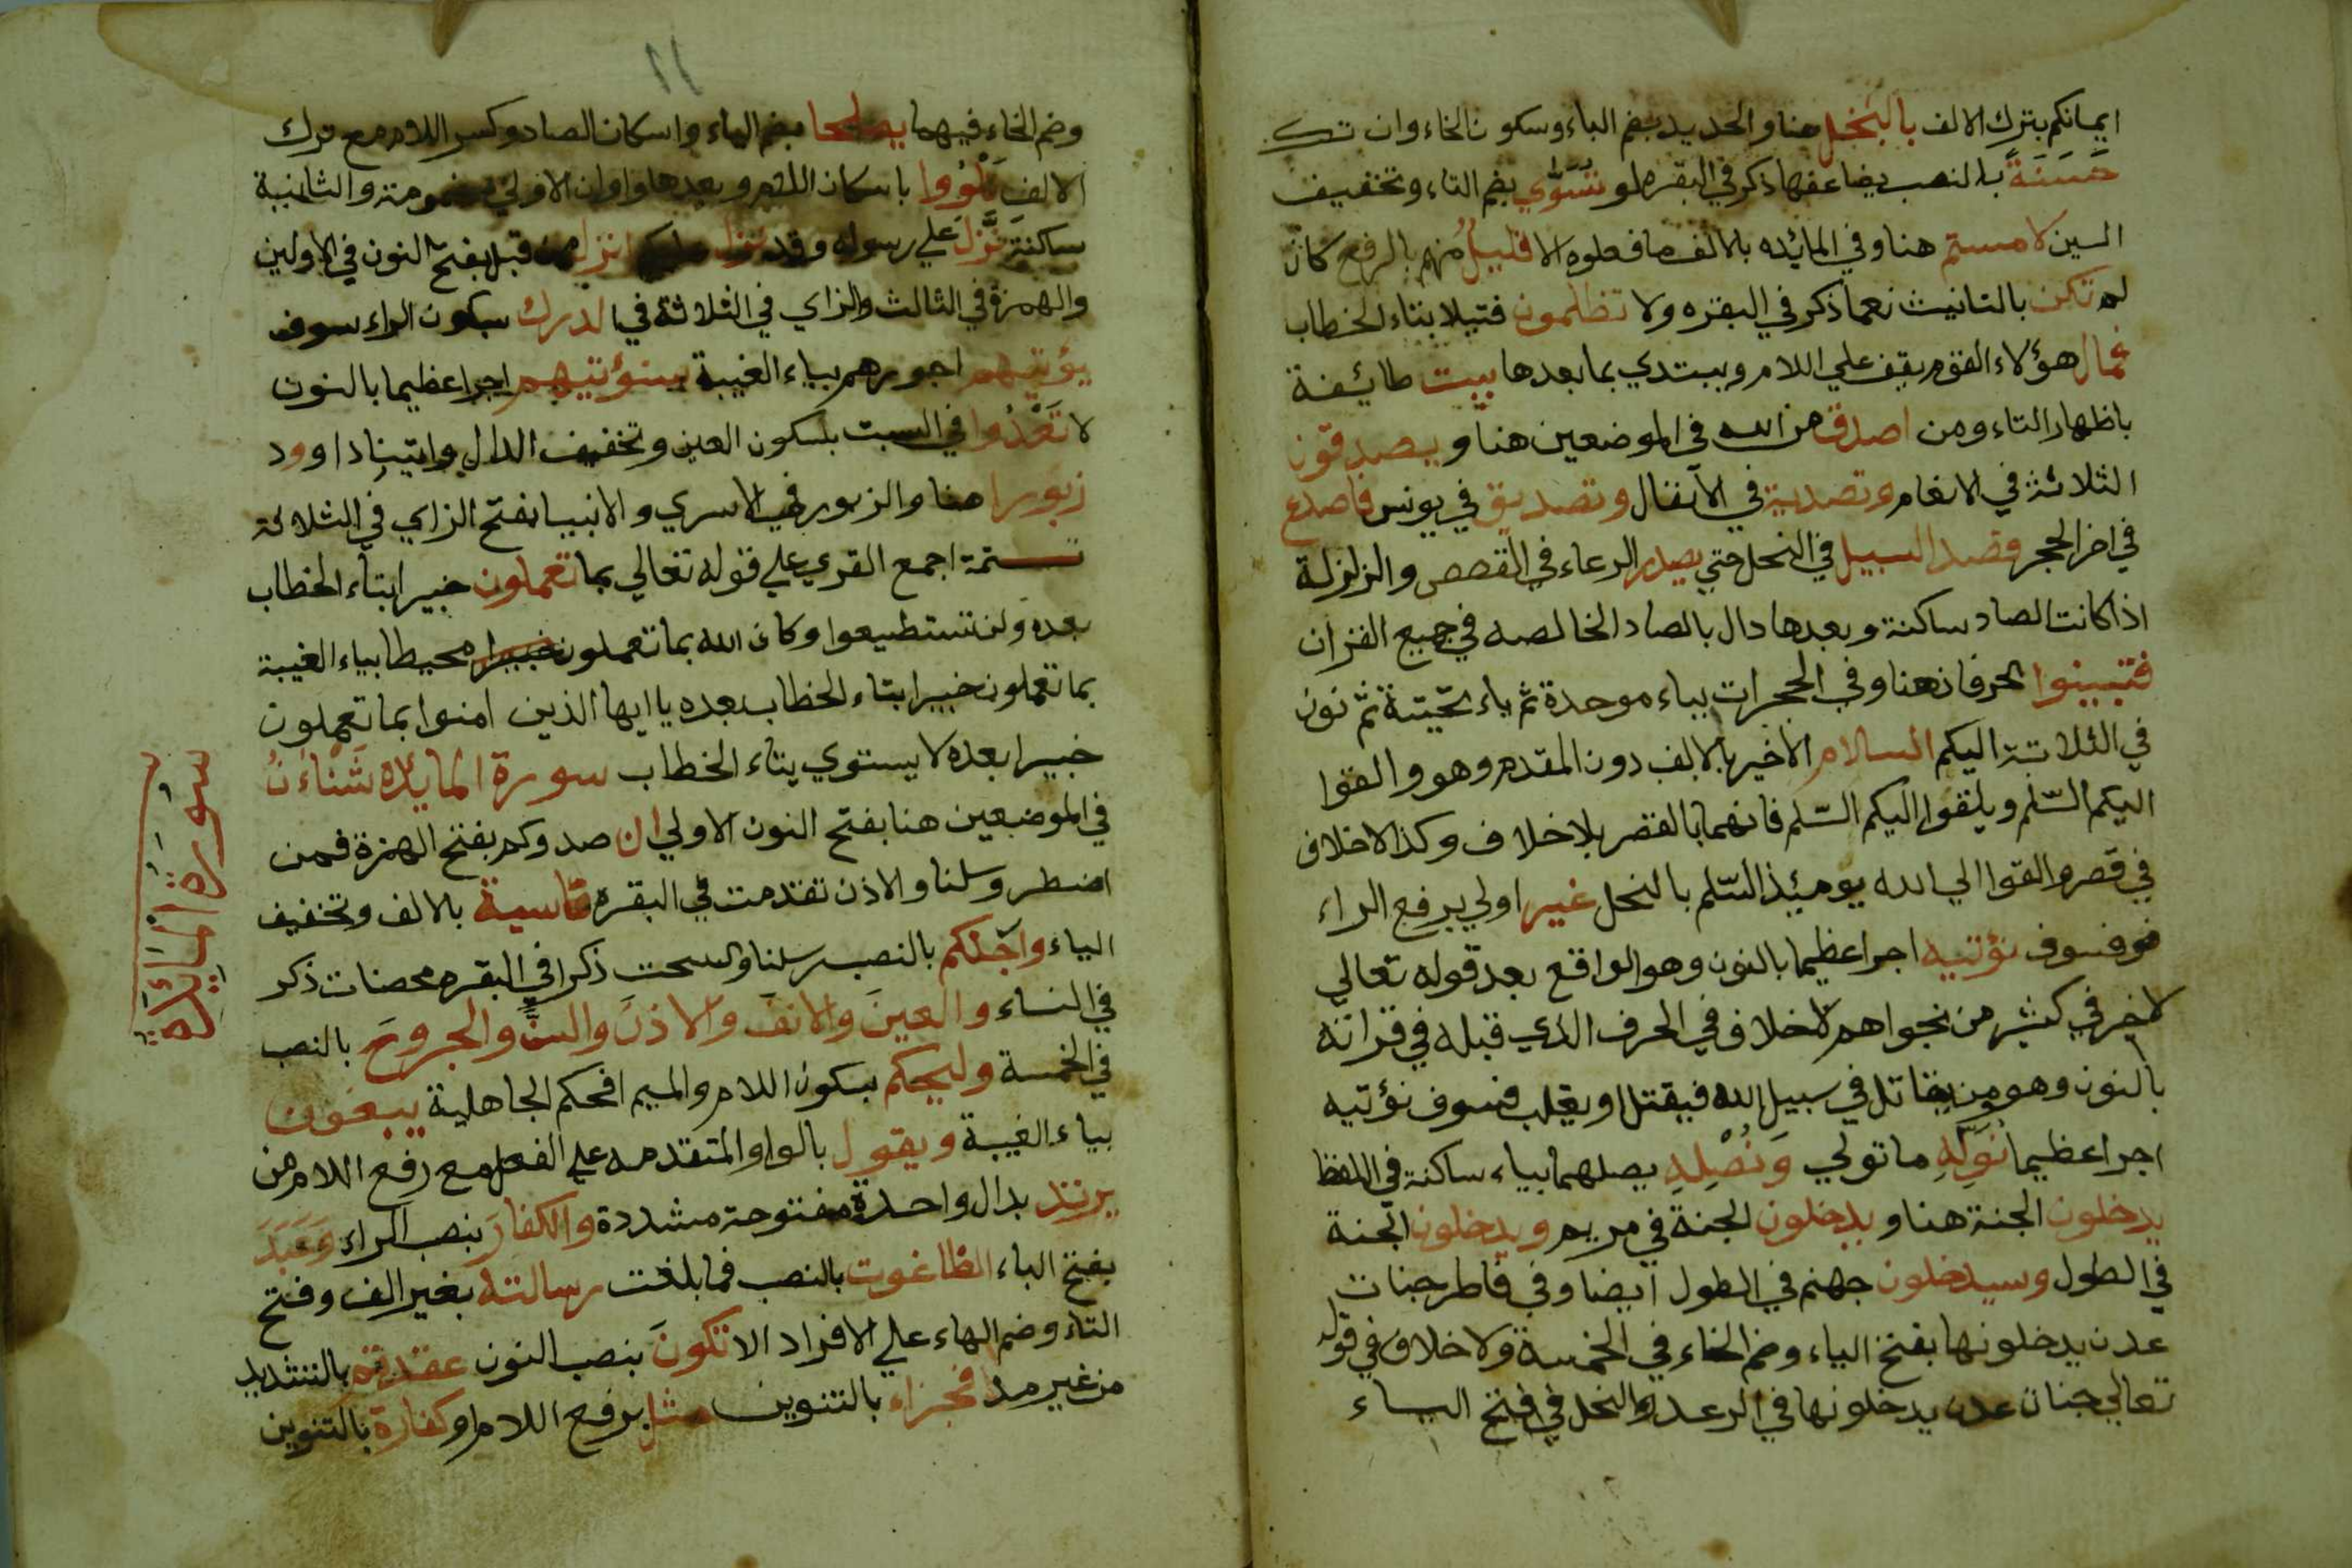 ايمانكم بترك الالف بالبخل هنا والحديد بضم الباء وسكون الخاء وان تك
حسنة بالنصب يضاعفها ذكر في البقره لو تسوي بضم التاء وتخفيف
السين لامستم هنا وفي المائده بالالف ما فعلوه الا قليل منهم بالرفع كان
لم تكن بالتانيث نعما ذكر في البقره ولا تظلمون فتيلا بتاء الخطاب
فمال هؤلاء القوم يقف علي اللام ويبتدي بما بعدها بيت طائفة
باظهار التاء ومن اصدق من الله في الموضعين هنا ويصدقون
الثلاثة في الانعام وتصدية في الانفال وتصديق في يونس فاصدع
في اخر الحجر وقصد السبيل في النحل حتي يصدر الرعاء في القصص والزلزلة
اذا كانت الصاد ساكنة وبعدها دال بالصاد الخالصه في جميع القران
فتبينوا الحرفان هنا وفي الحجرات بباء موحدة ثم ياء تحتية ثم نون
في الثلاثة اليكم السلام الاخير بالالف دون المقدم وهو والقوا
اليكم السلم ويلقوا اليكم السلم فانهما بالقصر بلا خلاف وكذا لا خلاف
في قصر والقوا الي الله يومئذ السلم بالنحل غير اولي برفع الراء
فسوف نؤتيه اجرا عظيما بالنون وهو الواقع بعد قوله تعالي
لا خير في كثير من نجواهم لا خلاف في الحرف الذي قبله في قراته
بالنون وهو ومن يقاتل في سبيل الله فيقتل او يغلب فسوف نؤتيه
اجرا عظيما نوله ما تولي ونصله يصلهما بياء ساكنة في اللفظ
يدخلون الجنة هنا ويدخلون الجنة في مريم ويدخلون الجنة
في الطول وسيدخلون جهنم في الطول ايضا وفي فاطر جنات
عدن يدخلونها بفتح الياء وضم الخاء في الخمسة ولا خلاف في قوله
تعالي جنات عدن يدخلونها في الرعد والنحل في فتح الياء
وضم الخاء فيهما يصلحا بضم الياء واسكان الصاد وكسر اللام مع ترك
الالف تلووا باسكان اللام وبعدها واوان الاولي مضمومة والثانية
ساكنة نزل علي رسوله وقد نزل عليكم انزل من قبل بفتح النون في الاولين
والهمزة في الثالث والزاي في الثلاثة في الدرك بسكون الراء سوف
يؤتيهم اجورهم بياء الغيبة سنؤتيهم اجرا عظيما بالنون
لا تعدوا في السبت بسكون العين وتخفيف الدال واتينا داوود
زبورا هنا والزبور في الاسري والانبيا بفتح الزاي في الثلاثة
تتمة اجمع القري علي قوله تعالي بما تعملون خبيرا بتاء الخطاب
بعده ولن تستطيعوا وكان الله بما تعملون خبيرا محيطا بياء الغيبة
بما تعملون خبيرا بتاء الخطاب بعده يا ايها الذين امنوا بما تعملون
خبيرا بعده لا يستوي بتاء الخطاب سورة المايده شنان
في الموضعين هنا بفتح النون الاولي ان صدوكم بفتح الهمزة فمن
اضطر وسلنا والاذن تقدمت في البقره قاسية بالالف وتخفيف
الياء وارجلكم بالنصب رسلنا والسحت ذكرا في البقره محصنات ذكر
في النساء والعين والانف والاذن والسن والجروح بالنصب
في الخمسة وليحكم بسكون اللام والميم افحكم الجاهلية يبغون
بياء الغيبة ويقول بالواو المتقدمه علي الفعل مع رفع اللام من
يرتد بدال واحدة مفتوحة مشددة والكفار بنصب الراء وعبد
بفتح الباء الطاغوت بالنصب فما بلغت رسالته بغير الف وفتح
التاء وضم الهاء علي الافراد الا تكون بنصب النون عقدتم بالتشديد
من غير مد فجزاء بالتنوين مثل برفع اللام او كفارة بالتنوين
سورة المائدة